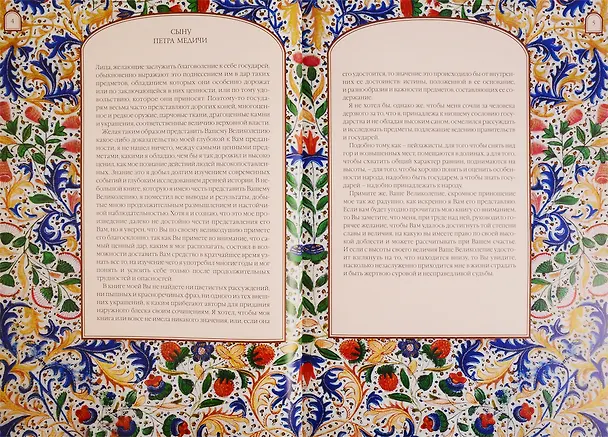 4
5
СЫНУ
ПЕТРА МЕДИЧИ
Лица, желающие заслужить благоволение к себе государей,
обыкновенно выражают это поднесением им в дар таких
предметов, обладанием которых они особенно дорожат
или по заключающейся в них ценности, или по тому удо-
вольствию, которое они приносят. Поэтому-то государ-
ям весьма часто представляют дорогих коней, многоцен-
ное и редкое оружие, парчовые ткани, драгоценные камни
и украшения, соответственные величию верховной власти.
Желая таким образом представить Вашему Великолепию
какое-либо доказательство моей глубокой к Вам преданно-
сти, я не нашел ничего, между самыми ценными предме-
тами, какими я обладаю, чем бы я так дорожил и высоко
ценил, как мое познание действий людей высокопоставлен-
ных. Знание это я добыл долгим изучением современных
событий и глубоким исследованием древней истории. И в не-
большой книге, которую я имею честь представить Вашему
Великолепию, я поместил все выводы и результаты, добы-
тые мною продолжительным размышлением и настойчи-
вой наблюдательностью. Хотя я и сознаю, что это мое про-
изведение далеко не достойно чести представления его
Вам, но я уверен, что Вы по своему великодушию примете
его благосклонно, так как Вы примете во внимание, что са-
мый ценный дар, каким я мог располагать, состоит в возмож-
ности доставить Вам средство в кратчайшее время узнать
все то, на изучение чего я употребил многие годы и мог
понять и усвоить себе только после продолжительных
трудностей и опасностей.
В книге моей Вы не найдете ни цветистых рассуждений,
ни пышных и красноречивых фраз, ни одного из тех внеш-
них украшений, к каким прибегают авторы для придания
наружного блеска своим сочинениям. Я хотел, чтобы моя
книга или вовсе не имела никакого значения, или, если она
его удостоится, то значение это происходило бы от внутрен-
них ее достоинств: истины, положенной в ее основание,
и разнообразия и важности предметов, составляющих ее со-
держание.
Я не хотел бы, однако же, чтобы меня сочли за человека
дерзкого за то, что я, принадлежа к низшему сословию госу-
дарства и не обладая высоким саном, осмелился рассуждать
и исследовать предметы, подлежащие ведению правительств
и государей.
Подобно тому, как — пейзажисты, для того чтобы снять вид
гор и возвышенных мест, помещаются в долинах, а для того,
чтобы схватить общий характер равнин, поднимаются на
высоты, — для того, чтобы хорошо понять и оценить особен-
ности народа, надобно быть государем, а чтобы знать госуда-
рей — надобно принадлежать к народу.
Примите же, Ваше Великолепие, скромное приношение
мое так же радушно, как искренно я Вам его представляю.
Если вам будет угодно прочитать мою книгу со вниманием,
то Вы заметите, что мной, при труде над нею, руководило го-
рячее желание, чтобы Вам удалось достигнуть той степени
славы и величия, на какую вы имеете право по своей высо-
кой доблести и может рассчитывать при Вашем счастье.
И если с высоты своего величия Ваше Великолепие удосто-
ит взглянуть на то, что находится внизу, то Вы увидите,
насколько незаслуженно приходится мне в жизни страдать
и быть жертвою суровой и несправедливой судьбы.